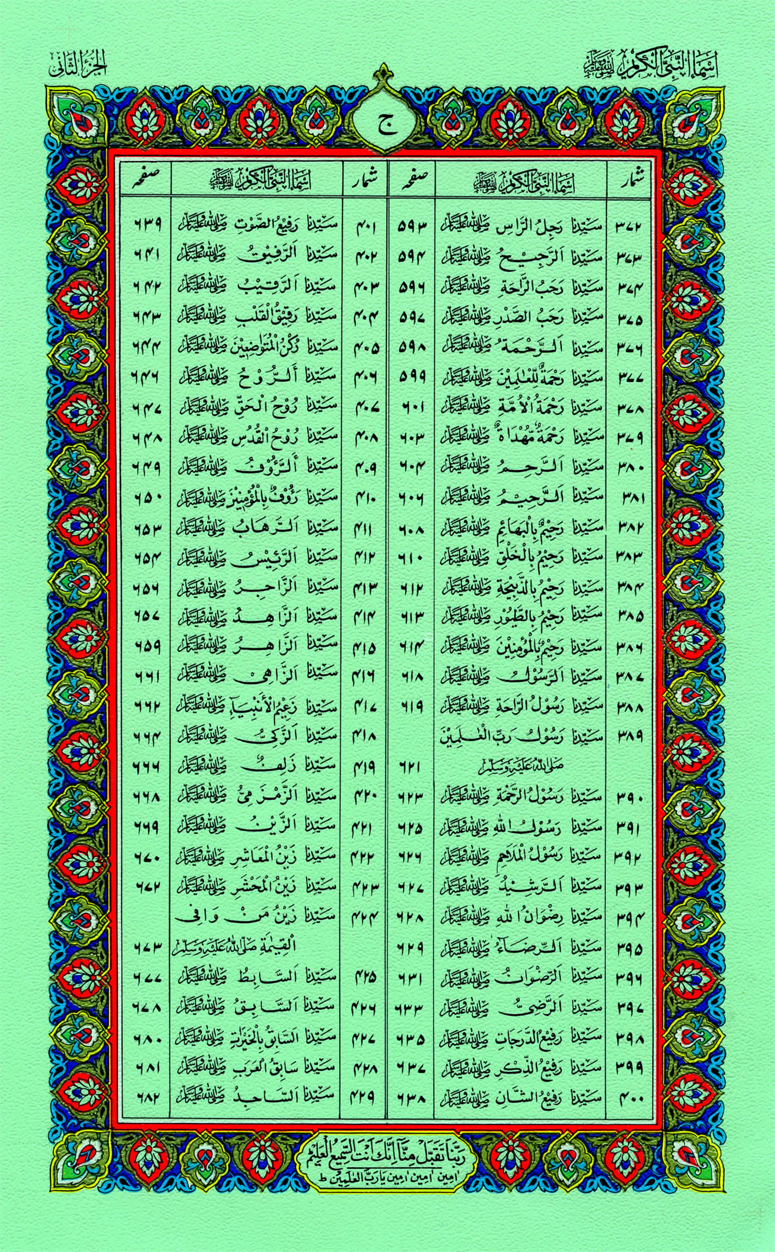 اسماء النبی الکریم ﷺ
الجزء الثانی
ج
شمار اسماء النبی الکریم ﷺ صفحہ
۳۷۲ سَیِّدُنَا رَجِلُ الرَّاسِ ﷺ ۵۹۳
۳۷۳ سَیِّدُنَا اَلرَّجِیْحُ ﷺ ۵۹۴
۳۷۴ سَیِّدُنَا رَحْبُ الرَّاحَةِ ﷺ ۵۹۶
۳۷۵ سَیِّدُنَا رَحْبُ الصَّدْرِ ﷺ ۵۹۷
۳۷۶ سَیِّدُنَا اَلرَّحْمَةُ ﷺ ۵۹۸
۳۷۷ سَیِّدُنَا رَحْمَةٌ لِّلْعٰلَمِیْنَ ﷺ ۵۹۹
۳۷۸ سَیِّدُنَا رَحْمَةُ الْاُمَّةِ ﷺ ۶۰۱
۳۷۹ سَیِّدُنَا رَحْمَةٌ مُّهْدَاةٌ ﷺ ۶۰۳
۳۸۰ سَیِّدُنَا اَلرَّحِمُ ﷺ ۶۰۴
۳۸۱ سَیِّدُنَا اَلرَّحِیْمُ ﷺ ۶۰۶
۳۸۲ سَیِّدُنَا رَحِیْمٌ بِالْبَهَائِمِ ﷺ ۶۰۸
۳۸۳ سَیِّدُنَا رَحِیْمٌ بِالْخَلْقِ ﷺ ۶۱۰
۳۸۴ سَیِّدُنَا رَحِیْمٌ بِالذَّبِیْحَةِ ﷺ ۶۱۲
۳۸۵ سَیِّدُنَا رَحِیْمٌ بِالطُّیُوْرِ ﷺ ۶۱۳
۳۸۶ سَیِّدُنَا رَحِیْمٌ بِالْمُؤْمِنِیْنَ ﷺ ۶۱۴
۳۸۷ سَیِّدُنَا اَلرَّسُوْلُ ﷺ ۶۱۸
۳۸۸ سَیِّدُنَا رَسُوْلُ الرَّاحَةِ ﷺ ۶۱۹
۳۸۹ سَیِّدُنَا رَسُوْلُ رَبِّ الْعٰلَمِیْنَ
صَلَّی اللّٰهُ عَلَیْهِ وَسَلَّمَ ۶۲۱
۳۹۰ سَیِّدُنَا رَسُوْلُ الرَّحْمَةِ ﷺ ۶۲۳
۳۹۱ سَیِّدُنَا رَسُوْلُ اللّٰهِ ﷺ ۶۲۵
۳۹۲ سَیِّدُنَا رَسُوْلُ الْمَلَاحِمِ ﷺ ۶۲۶
۳۹۳ سَیِّدُنَا اَلرَّشِیْدُ ﷺ ۶۲۷
۳۹۴ سَیِّدُنَا رِضْوَانُ اللّٰهِ ﷺ ۶۲۸
۳۹۵ سَیِّدُنَا اَلرِّضَاءُ ﷺ ۶۲۹
۳۹۶ سَیِّدُنَا اَلرِّضْوَانُ ﷺ ۶۳۱
۳۹۷ سَیِّدُنَا اَلرَّضِیُّ ﷺ ۶۳۳
۳۹۸ سَیِّدُنَا رَفِیْعُ الدَّرَجَاتِ ﷺ ۶۳۵
۳۹۹ سَیِّدُنَا رَفِیْعُ الذِّكْرِ ﷺ ۶۳۷
۴۰۰ سَیِّدُنَا رَفِیْعُ الشَّانِ ﷺ ۶۳۸
شمار اسماء النبی الکریم ﷺ صفحہ
۴۰۱ سَیِّدُنَا رَفِیْعُ الصَّوْتِ ﷺ ۶۳۹
۴۰۲ سَیِّدُنَا اَلرَّفِیْقُ ﷺ ۶۴۱
۴۰۳ سَیِّدُنَا اَلرَّقِیْبُ ﷺ ۶۴۲
۴۰۴ سَیِّدُنَا رَقِیْقُ الْقَلْبِ ﷺ ۶۴۳
۴۰۵ سَیِّدُنَا رُكْنُ الْمُتَوَاضِعِیْنَ ﷺ ۶۴۴
۴۰۶ سَیِّدُنَا اَلرُّوْحُ ﷺ ۶۴۶
۴۰۷ سَیِّدُنَا رُوْحُ الْحَقِّ ﷺ ۶۴۷
۴۰۸ سَیِّدُنَا رُوْحُ الْقُدُسِ ﷺ ۶۴۸
۴۰۹ سَیِّدُنَا اَلرَّؤُوْفُ ﷺ ۶۴۹
۴۱۰ سَیِّدُنَا رَؤُوْفٌ بِالْمُؤْمِنِیْنَ ﷺ ۶۵۰
۴۱۱ سَیِّدُنَا اَلرَّهَابُ ﷺ ۶۵۳
۴۱۲ سَیِّدُنَا اَلرَّئِیْسُ ﷺ ۶۵۴
۴۱۳ سَیِّدُنَا اَلزَّاجِرُ ﷺ ۶۵۶
۴۱۴ سَیِّدُنَا اَلزَّاهِدُ ﷺ ۶۵۷
۴۱۵ سَیِّدُنَا اَلزَّاهِرُ ﷺ ۶۵۹
۴۱۶ سَیِّدُنَا اَلزَّاهِیُ ﷺ ۶۶۱
۴۱۷ سَیِّدُنَا زَعِیْمُ الْاَنْبِیَآءِ ﷺ ۶۶۲
۴۱۸ سَیِّدُنَا اَلزَّكِیُّ ﷺ ۶۶۴
۴۱۹ سَیِّدُنَا زَلِفٌ ﷺ ۶۶۶
۴۲۰ سَیِّدُنَا اَلزَّمْزَمِیُّ ﷺ ۶۶۸
۴۲۱ سَیِّدُنَا اَلزَّیْنُ ﷺ ۶۶۹
۴۲۲ سَیِّدُنَا زَیْنُ الْمَعَاشِرِ ﷺ ۶۷۰
۴۲۳ سَیِّدُنَا زَیْنُ الْمَحْشَرِ ﷺ ۶۷۲
۴۲۴ سَیِّدُنَا زَیْنُ مَنْ وَافَی
الْقِیٰمَةِ صَلَّی اللّٰهُ عَلَیْهِ وَسَلَّمَ ۶۷۳
۴۲۵ سَیِّدُنَا اَلسَّابِطُ ﷺ ۶۷۷
۴۲۶ سَیِّدُنَا اَلسَّابِقُ ﷺ ۶۷۸
۴۲۷ سَیِّدُنَا اَلسَّابِقُ بِالْخَیْرَاتِ ﷺ ۶۸۰
۴۲۸ سَیِّدُنَا سَابِقُ الْعَرَبِ ﷺ ۶۸۱
۴۲۹ سَیِّدُنَا اَلسَّاجِدُ ﷺ ۶۸۲
رَبَّنَا تَقَبَّلْ مِنَّا اِنَّكَ اَنْتَ السَّمِیْعُ الْعَلِیْمُ
اٰمِیْن اٰمِیْن اٰمِیْن یَا رَبَّ الْعٰلَمِیْنَ ط